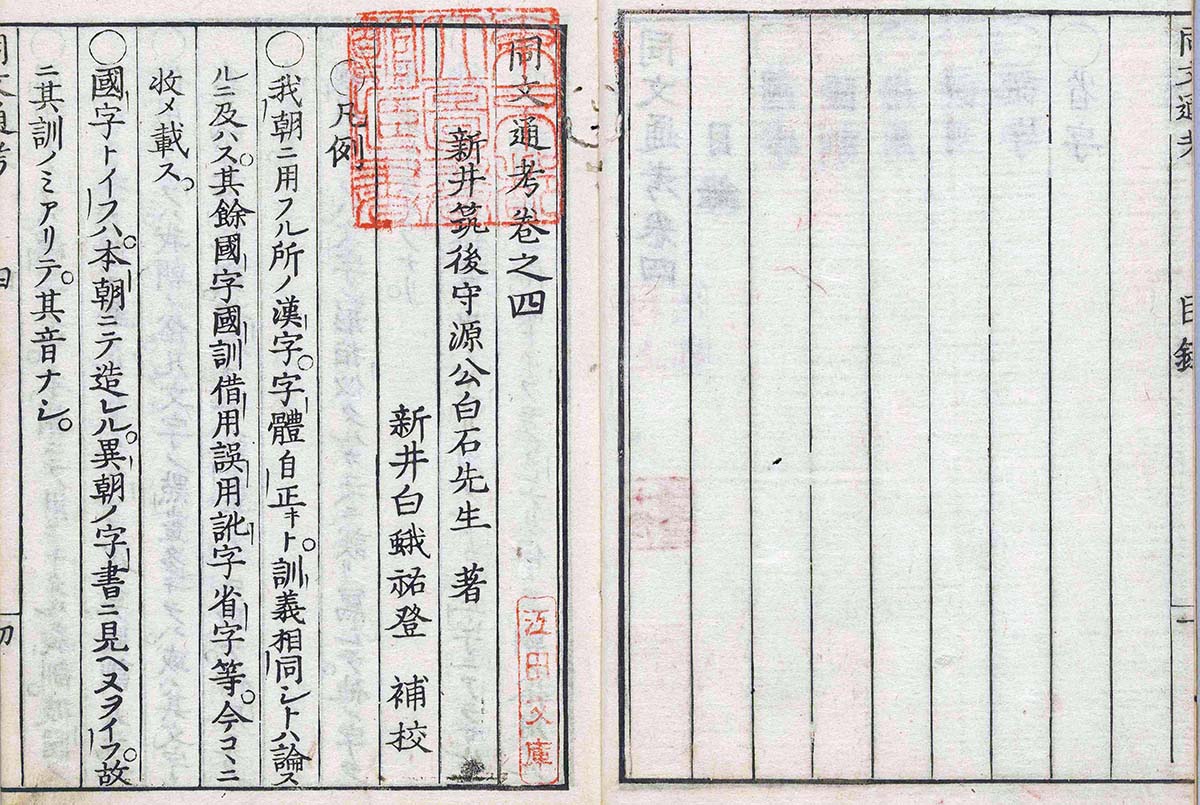 同文通考
目録
一
同文通考卷之四
新井筑後守源公白石先生 著
新井白蛾祐登 補校
江田文庫
◯凡例
◯我朝ニ用フル所ノ漢字。字體自正キト。訓義相同シトハ論ス
ルニ及ハス。其餘國字國訓借用誤用訛字省字等。今コヽニ
收メ載ス。
◯國字トイフハ。本朝ニテ造レル。異朝ノ字書ニ見ヘヌヲイフ。故
ニ其訓ノミアリテ。其音ナシ。
同文通考